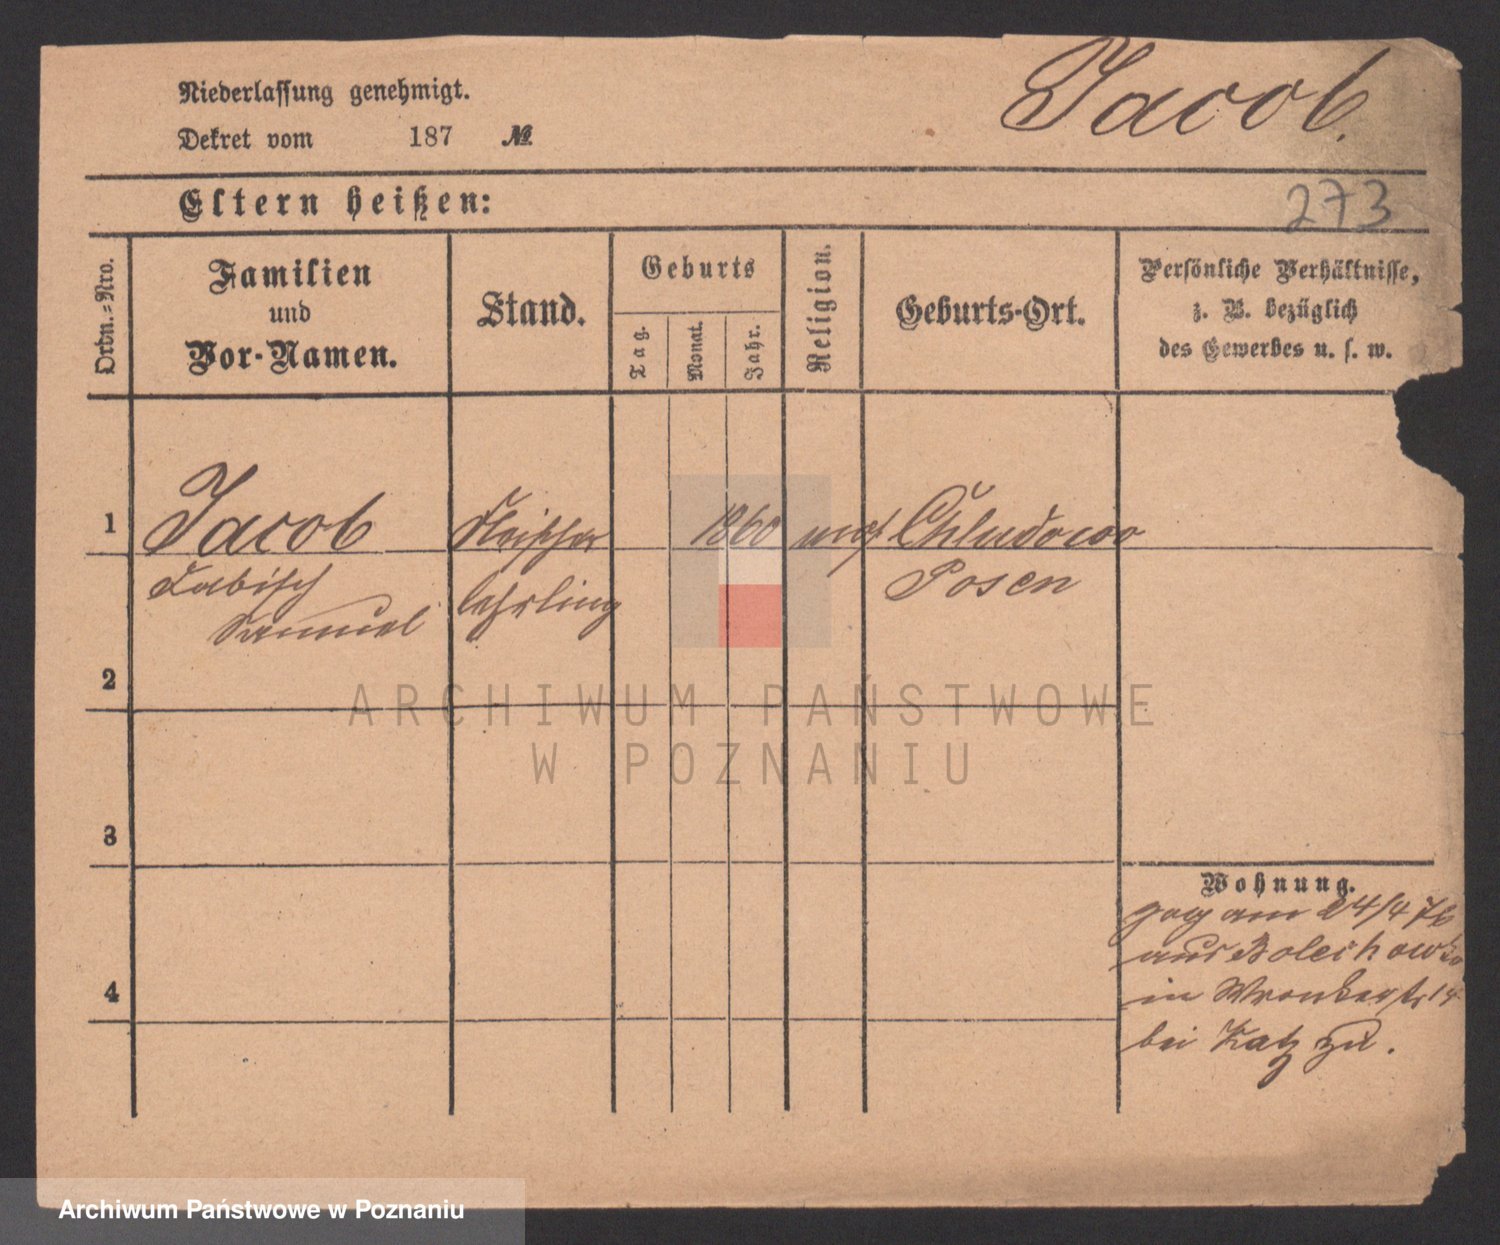 Niederlassung genehmigt.
Jacob.
Dekret vom 187 №
Eltern heißen:
273
Ordn.=Nro.
Familien
und
Vor-Namen.
Stand.
Geburts
Tag.
Monat.
Jahr.
Religion.
Geburts-Ort.
Persönliche Verhältnisse,
z. B. bezüglich
des Gewerbes u. s. w.
1
Jacob
Fleischer
1860
mos
Chludowo
Labisch
lehrling
Posen
Samuel
2
ARCHIWUM PAŃSTWOWE
W POZNANIU
3
Wohnung.
zog am 24/4 76
aus Bolechowko
4
in Wronkerstr 14
bei Katz zu.
Archiwum Państwowe w Poznaniu